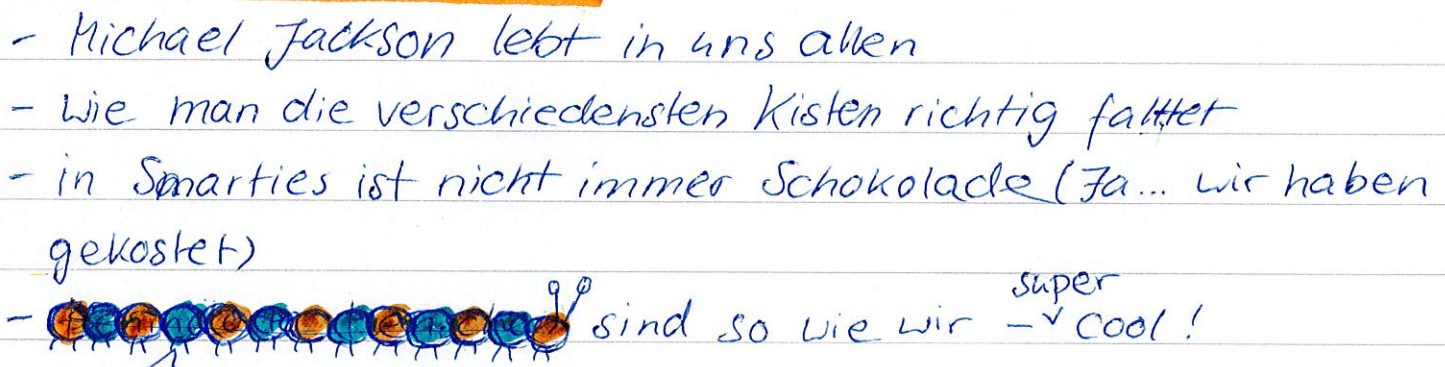 - Michael Jackson lebt in uns allen
- Wie man die verschiedensten Kisten richtig faltet
- in Smarties ist nicht immer Schokolade (Ja... wir haben
gekostet)
- sind so wie wir - super cool!